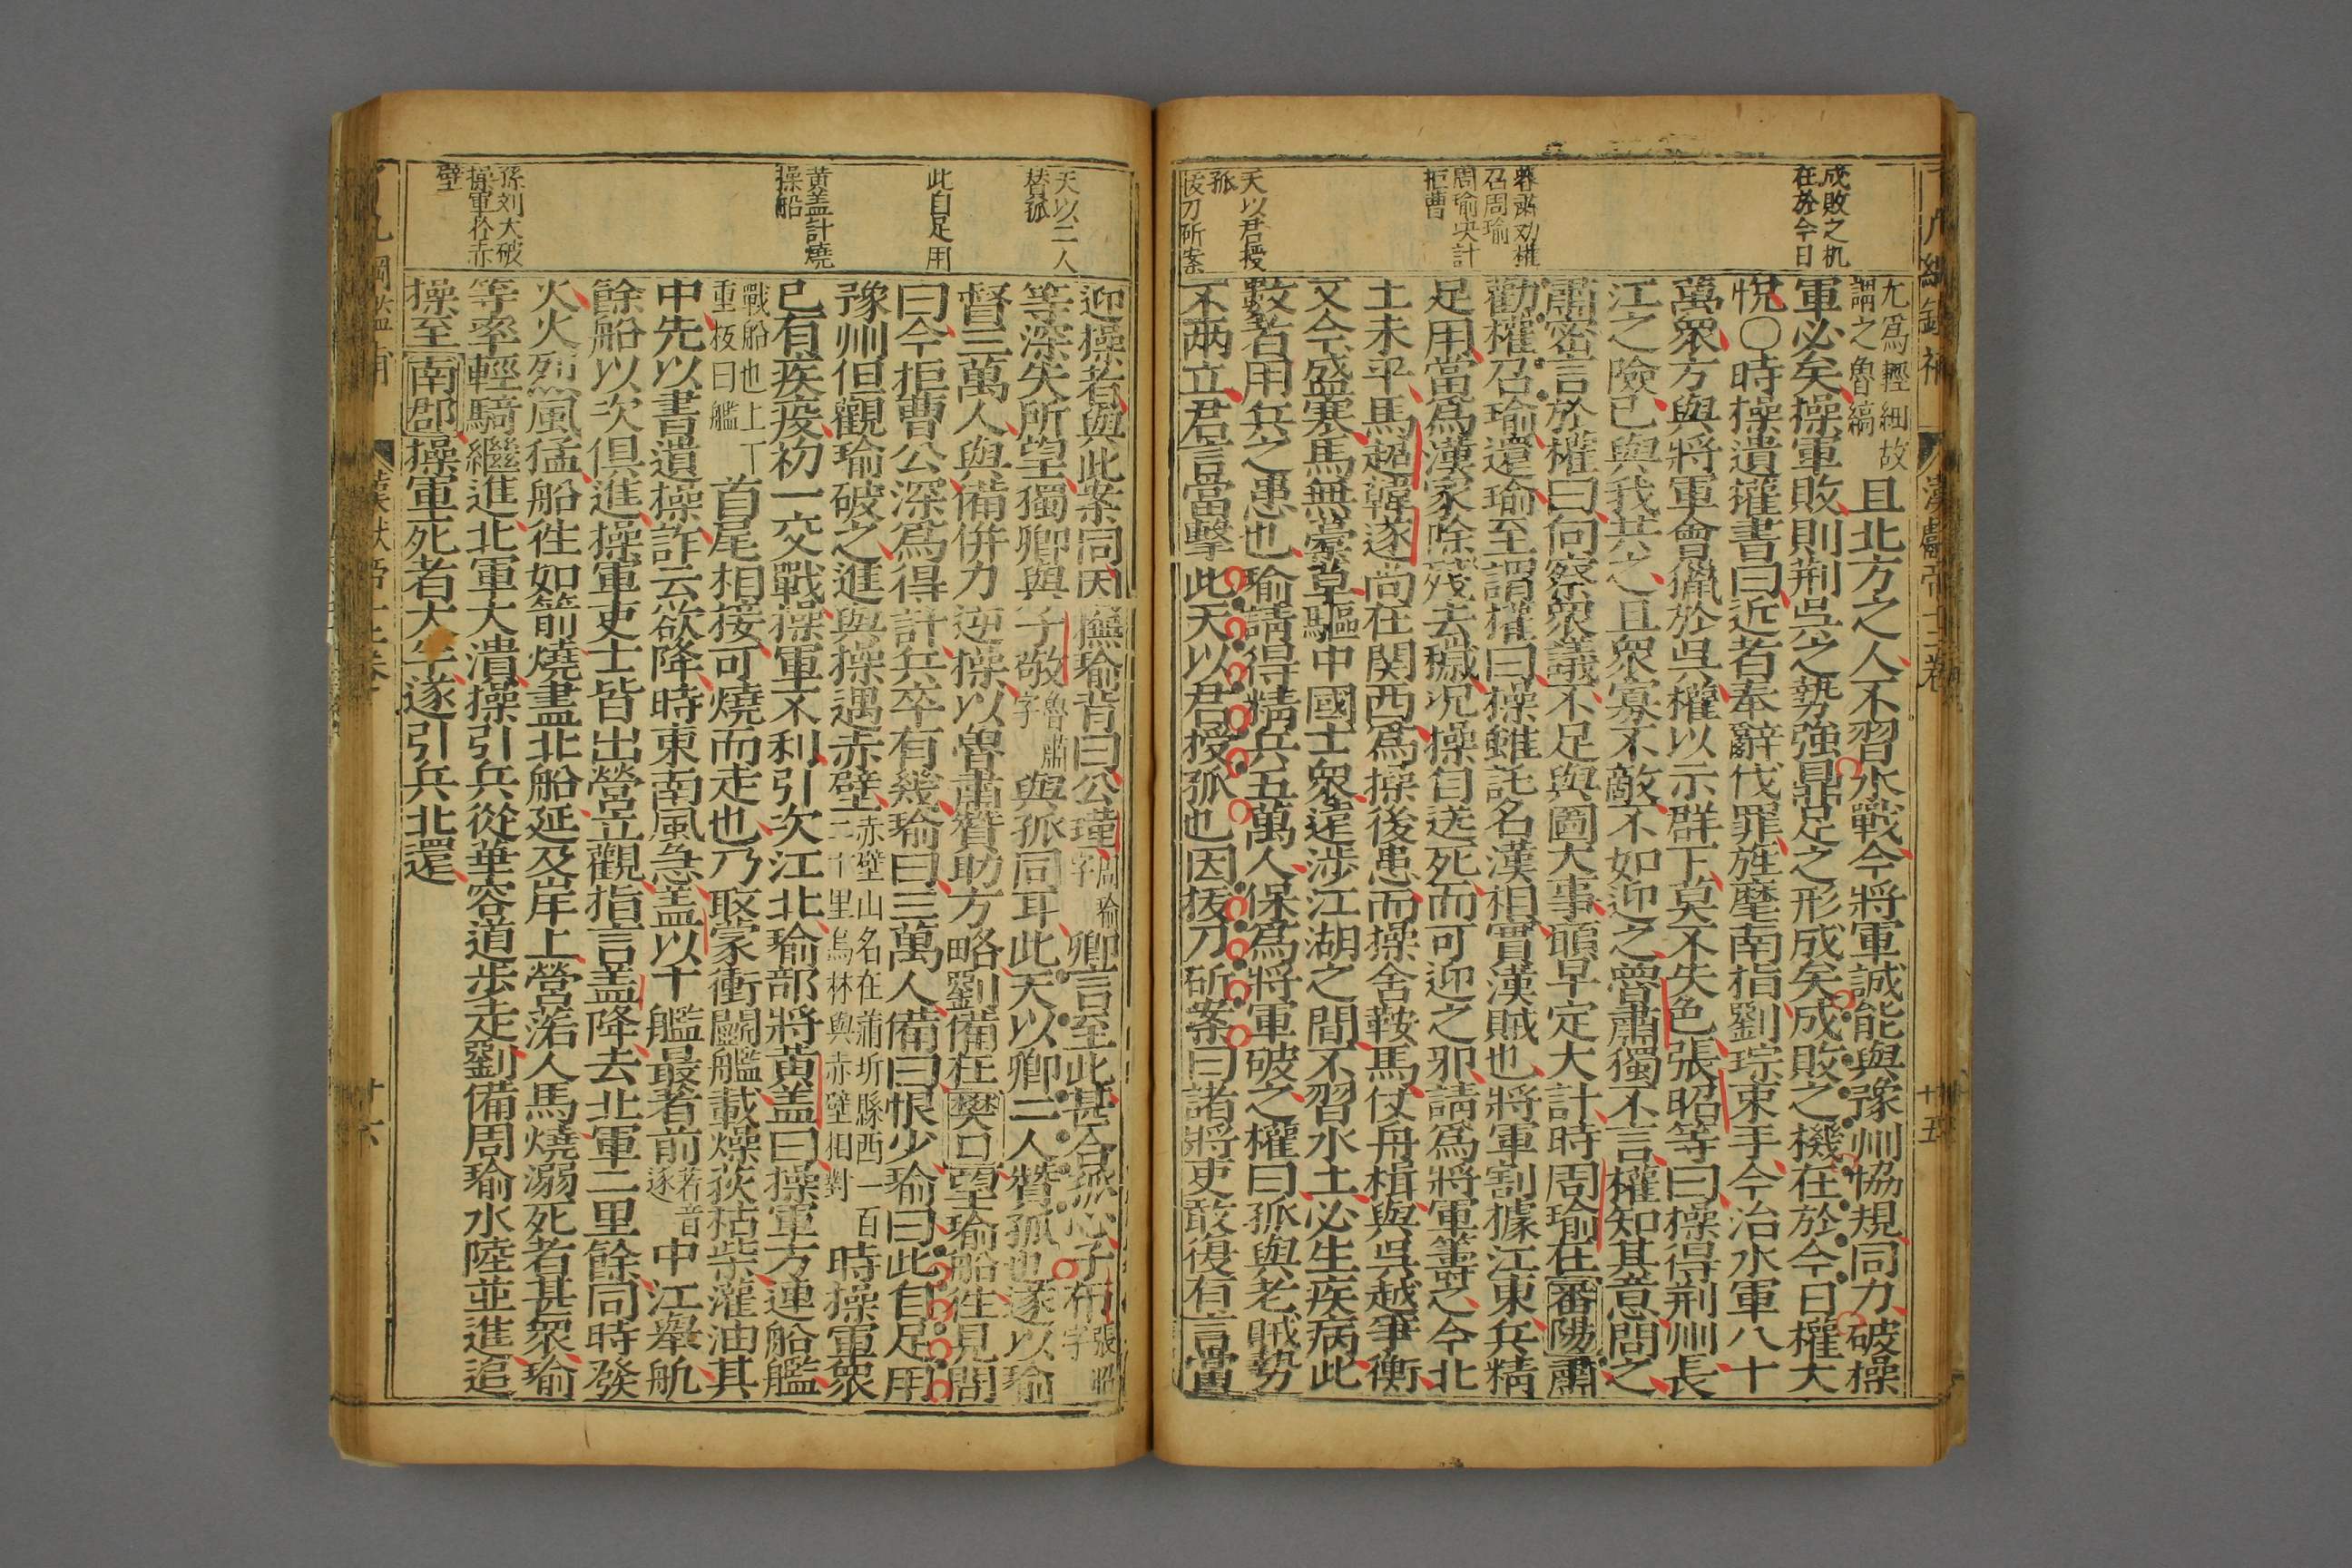 成敗之机
在於今日
魯肅劝權
召周瑜
周瑜决計
拒曹
天以君授
孤
拔刀斫案
尤爲輕細故
謂之魯縞
且北方之人不習水戰今將軍誠能與豫州協規同力破操
軍必矣操軍敗則荆吳之勢強鼎足之形成矣成敗之機在於今日權大
悅〇時操遺權書曰近者奉辭伐罪旌麾南指劉琮束手今治水軍八十
萬衆方與將軍會獵於吳權以示群下莫不失色張昭等曰操得荆州長
江之險已與我共之且衆寡不敵不如迎之魯肅獨不言權知其意問之
肅密言於權曰向察衆議不足與圖大事願早定大計時周瑜在番陽肅
勸權召瑜還瑜至謂權曰操雖託名漢相實漢賊也將軍割據江東兵精
足用當爲漢家除殘去穢况操自送死而可迎之邪請爲將軍籌之今北
土未平馬超韓遂尚在関西爲操後患而操舍鞍馬仗舟楫與吳越爭衡
又今盛寒馬無藁草驅中國士衆遠涉江湖之間不習水土必生疾病此
数者用兵之患也瑜請得精兵五萬人保爲將軍破之權曰孤與老賊勢
不两立君言當擊此天以君授孤也因拔刀斫案曰諸將吏敢復有言當
漢獻帝
十五
天以二人
賛孤
此自足用
黄盖計燒
操船
孫刘大破
操軍於赤
壁
迎操者與此案同因撫瑜背曰公瑾
周瑜
字
卿言至此甚合孤心子布
張昭
字
等深失所望獨卿與子敬
魯肅
字
與孤同耳此天以卿二人賛孤也遂以瑜
督三萬人與備併力逆操以魯肅賛助方略劉備在樊口望瑜船徃見問
曰今拒曹公深爲得計兵卒有幾瑜曰三萬人備曰恨少瑜曰此自足用
豫州但觀瑜破之進與操遇赤壁
赤壁山名在蒲圻縣西一百
二十里烏林與赤壁相對
時操軍衆
已有疾疫初一交戰操軍不利引次江北瑜部將黄盖曰操軍方連船艦
戰船也上下
重板曰艦
首尾相接可燒而走也乃取蒙衝鬪艦載燥荻枯柴灌油其
中先以書遺操詐云欲降時東南風急盖以十艦最著前
著音
逐
中江舉帆
餘船以次俱進操軍吏士皆出營立觀指言盖降去北軍二里餘同時發
火火烈風猛船徃如箭燒盡北船延及岸上營落人馬燒溺死者甚衆瑜
等率輕騎繼進北軍大潰操引兵從華容道步走劉備周瑜水陸並進追
操至南郡操軍死者大半遂引兵北還